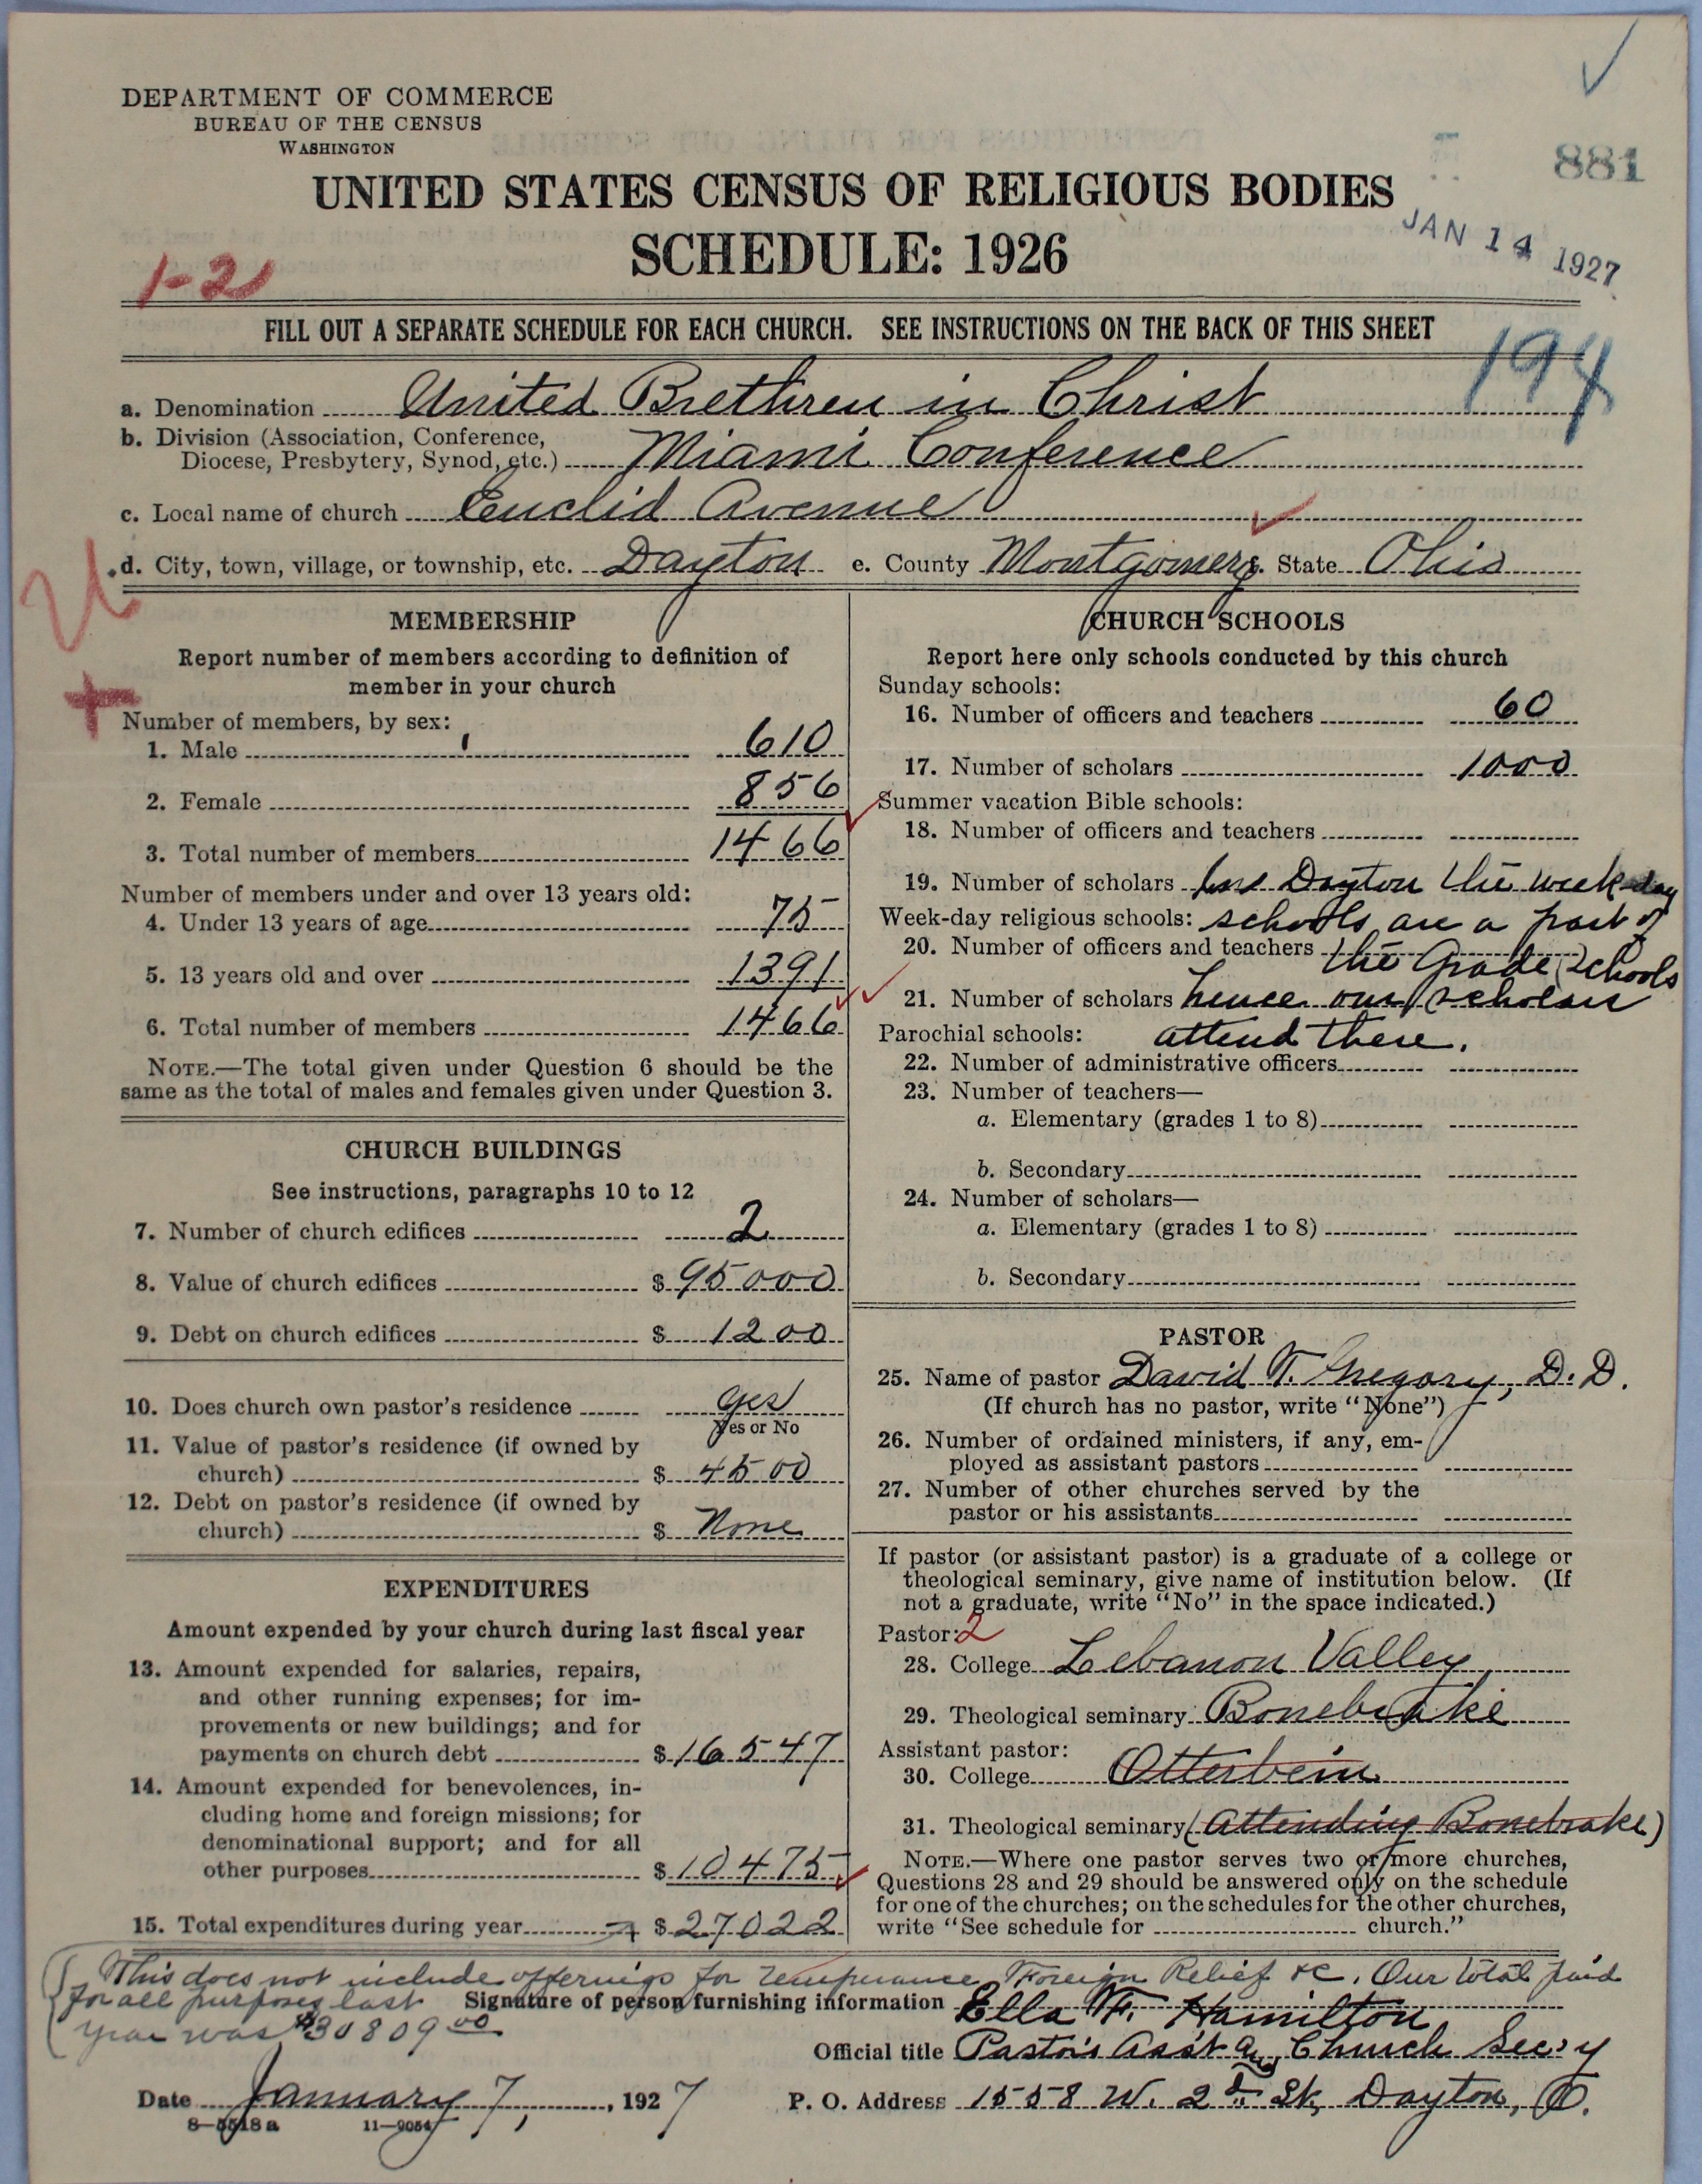 DEPARTMENT OF COMMERCE
BUREAU OF THE CENSUS
WASHINGTON
881
UNITED STATES CENSUS OF RELIGIOUS BODIES
JAN 14 1927
SCHEDULE: 1926
1-21
FILL OUT A SEPARATE SCHEDULE FOR EACH CHURCH. SEE INSTRUCTIONS ON THE BACK OF THIS SHEET
194
a. Denomination United Brethren in Christ
b. Division (Association, Conference,
Diocese, Presbytery, Synod, etc.) Miami Conference
c. Local name of church Euclid Avenue
d. City, town, village, or township, etc. Dayton e. County Montgomery f. State Ohio
U
+
MEMBERSHIP
Report number of members according to definition of
member in your church
Number of members, by sex:
1. Male 610
2. Female 856
3. Total number of members 1466
Number of members under and over 13 years old:
4. Under 13 years of age 75
5. 13 years old and over 1391
6. Total number of members 1466
NOTE.—The total given under Question 6 should be the
same as the total of males and females given under Question 3.
CHURCH BUILDINGS
See instructions, paragraphs 10 to 12
7. Number of church edifices 2
8. Value of church edifices $ 95000
9. Debt on church edifices $ 1200
10. Does church own pastor's residence yes
Yes or No
11. Value of pastor's residence (if owned by
church) $ 4500
12. Debt on pastor's residence (if owned by
church) $ None
EXPENDITURES
Amount expended by your church during last fiscal year
13. Amount expended for salaries, repairs,
and other running expenses; for im-
provements or new buildings; and for
payments on church debt $ 16547
14. Amount expended for benevolences, in-
cluding home and foreign missions; for
denominational support; and for all
other purposes $ 10475
15. Total expenditures during year $ 27022
CHURCH SCHOOLS
Report here only schools conducted by this church
Sunday schools:
16. Number of officers and teachers 60
17. Number of scholars 1000
Summer vacation Bible schools:
18. Number of officers and teachers
19. Number of scholars In Dayton the week-day
Week-day religious schools: schools are a part of
20. Number of officers and teachers the Grade Schools
21. Number of scholars hence our scholars
Parochial schools: attend there.
22. Number of administrative officers
23. Number of teachers—
a. Elementary (grades 1 to 8)
b. Secondary
24. Number of scholars—
a. Elementary (grades 1 to 8)
b. Secondary
PASTOR
25. Name of pastor David T. Gregory, D.D.
(If church has no pastor, write "None")
26. Number of ordained ministers, if any, em-
ployed as assistant pastors
27. Number of other churches served by the
pastor or his assistants
If pastor (or assistant pastor) is a graduate of a college or
theological seminary, give name of institution below. (If
not a graduate, write "No" in the space indicated.)
Pastor: 2
28. College Lebanon Valley
29. Theological seminary Bonebrake
Assistant pastor:
30. College Otterbein
31. Theological seminary (Attending Bonebrake)
NOTE.—Where one pastor serves two or more churches,
Questions 28 and 29 should be answered only on the schedule
for one of the churches; on the schedules for the other churches,
write "See schedule for church."
This does not include offerings for temperance, Foreign Relief &c. Our total paid
for all purposes last
year was $30809 00
Signature of person furnishing information Ella F. Hamilton
Official title Pastor's Ass't and Church Sec'y
Date January 7, 1927 P. O. Address 1558 W. 2d St, Dayton, O.
8—5518a 11—9054